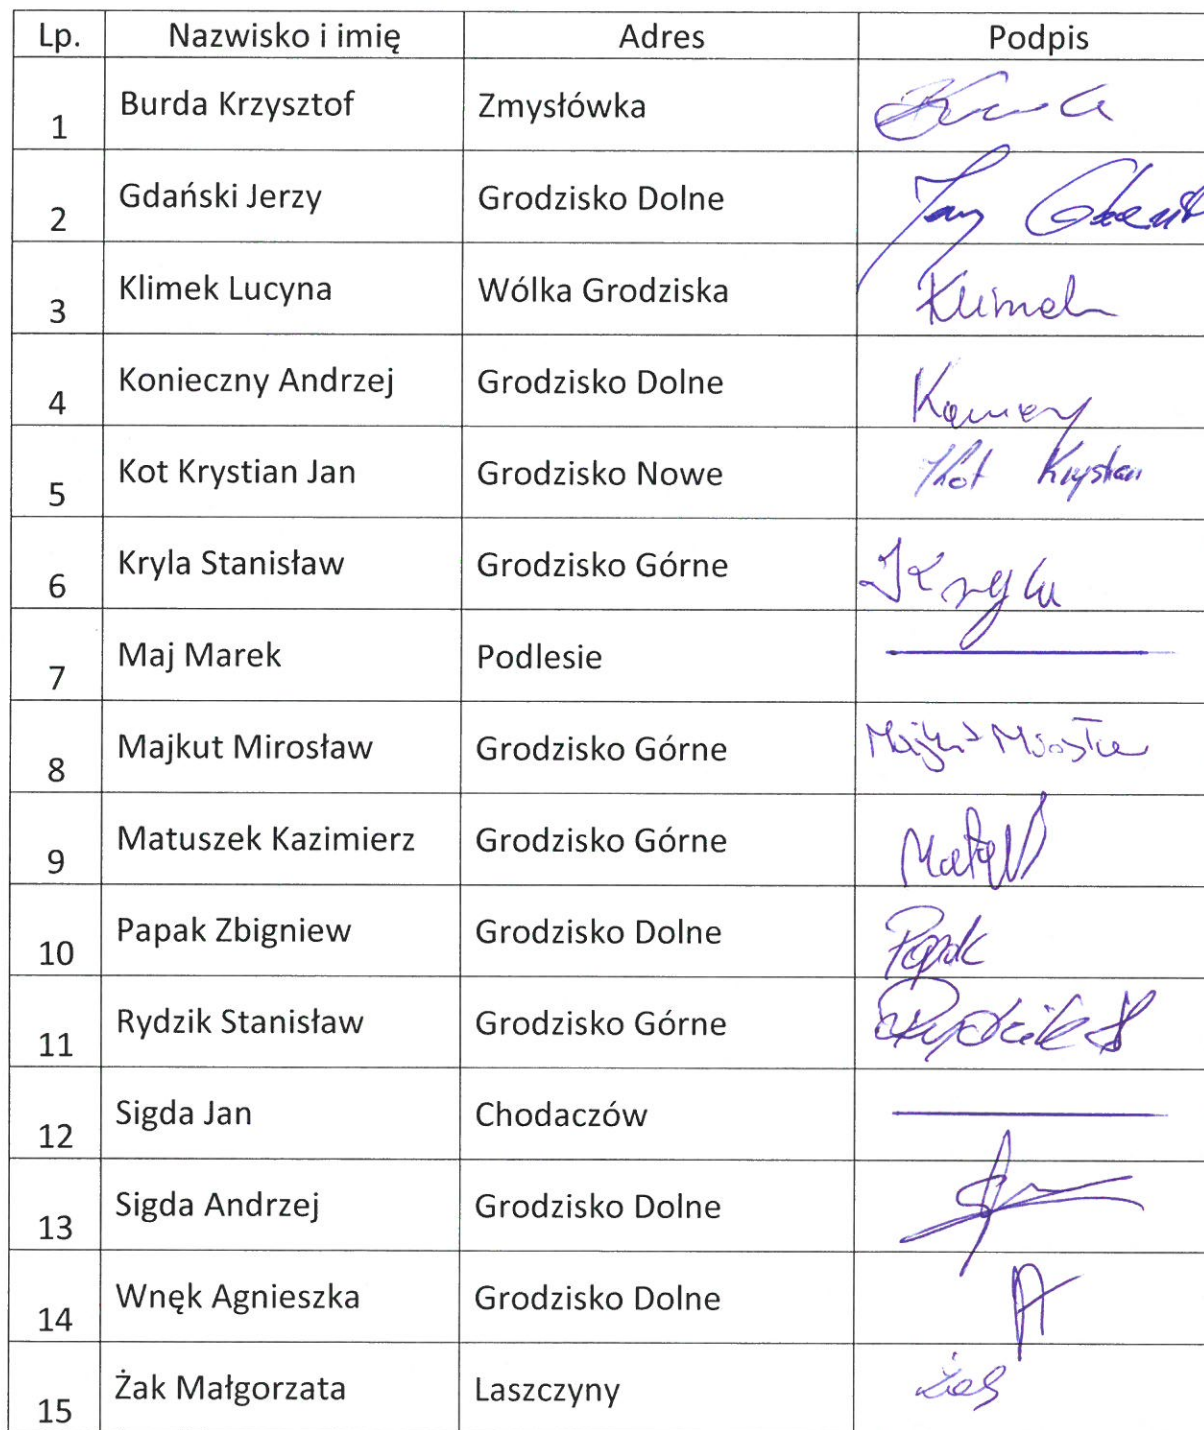 Lp. Nazwisko i imię Adres Podpis
1 Burda Krzysztof Zmysłówka
2 Gdański Jerzy Grodzisko Dolne
3 Klimek Lucyna Wólka Grodziska Klimek
4 Konieczny Andrzej Grodzisko Dolne
5 Kot Krystian Jan Grodzisko Nowe Kot Krystian
6 Kryla Stanisław Grodzisko Górne Kryla
7 Maj Marek Podlesie
8 Majkut Mirosław Grodzisko Górne Majkut Mirosław
9 Matuszek Kazimierz Grodzisko Górne
10 Papak Zbigniew Grodzisko Dolne Papak
11 Rydzik Stanisław Grodzisko Górne Rydzik S
12 Sigda Jan Chodaczów
13 Sigda Andrzej Grodzisko Dolne
14 Wnęk Agnieszka Grodzisko Dolne
15 Żak Małgorzata Laszczyny Żak